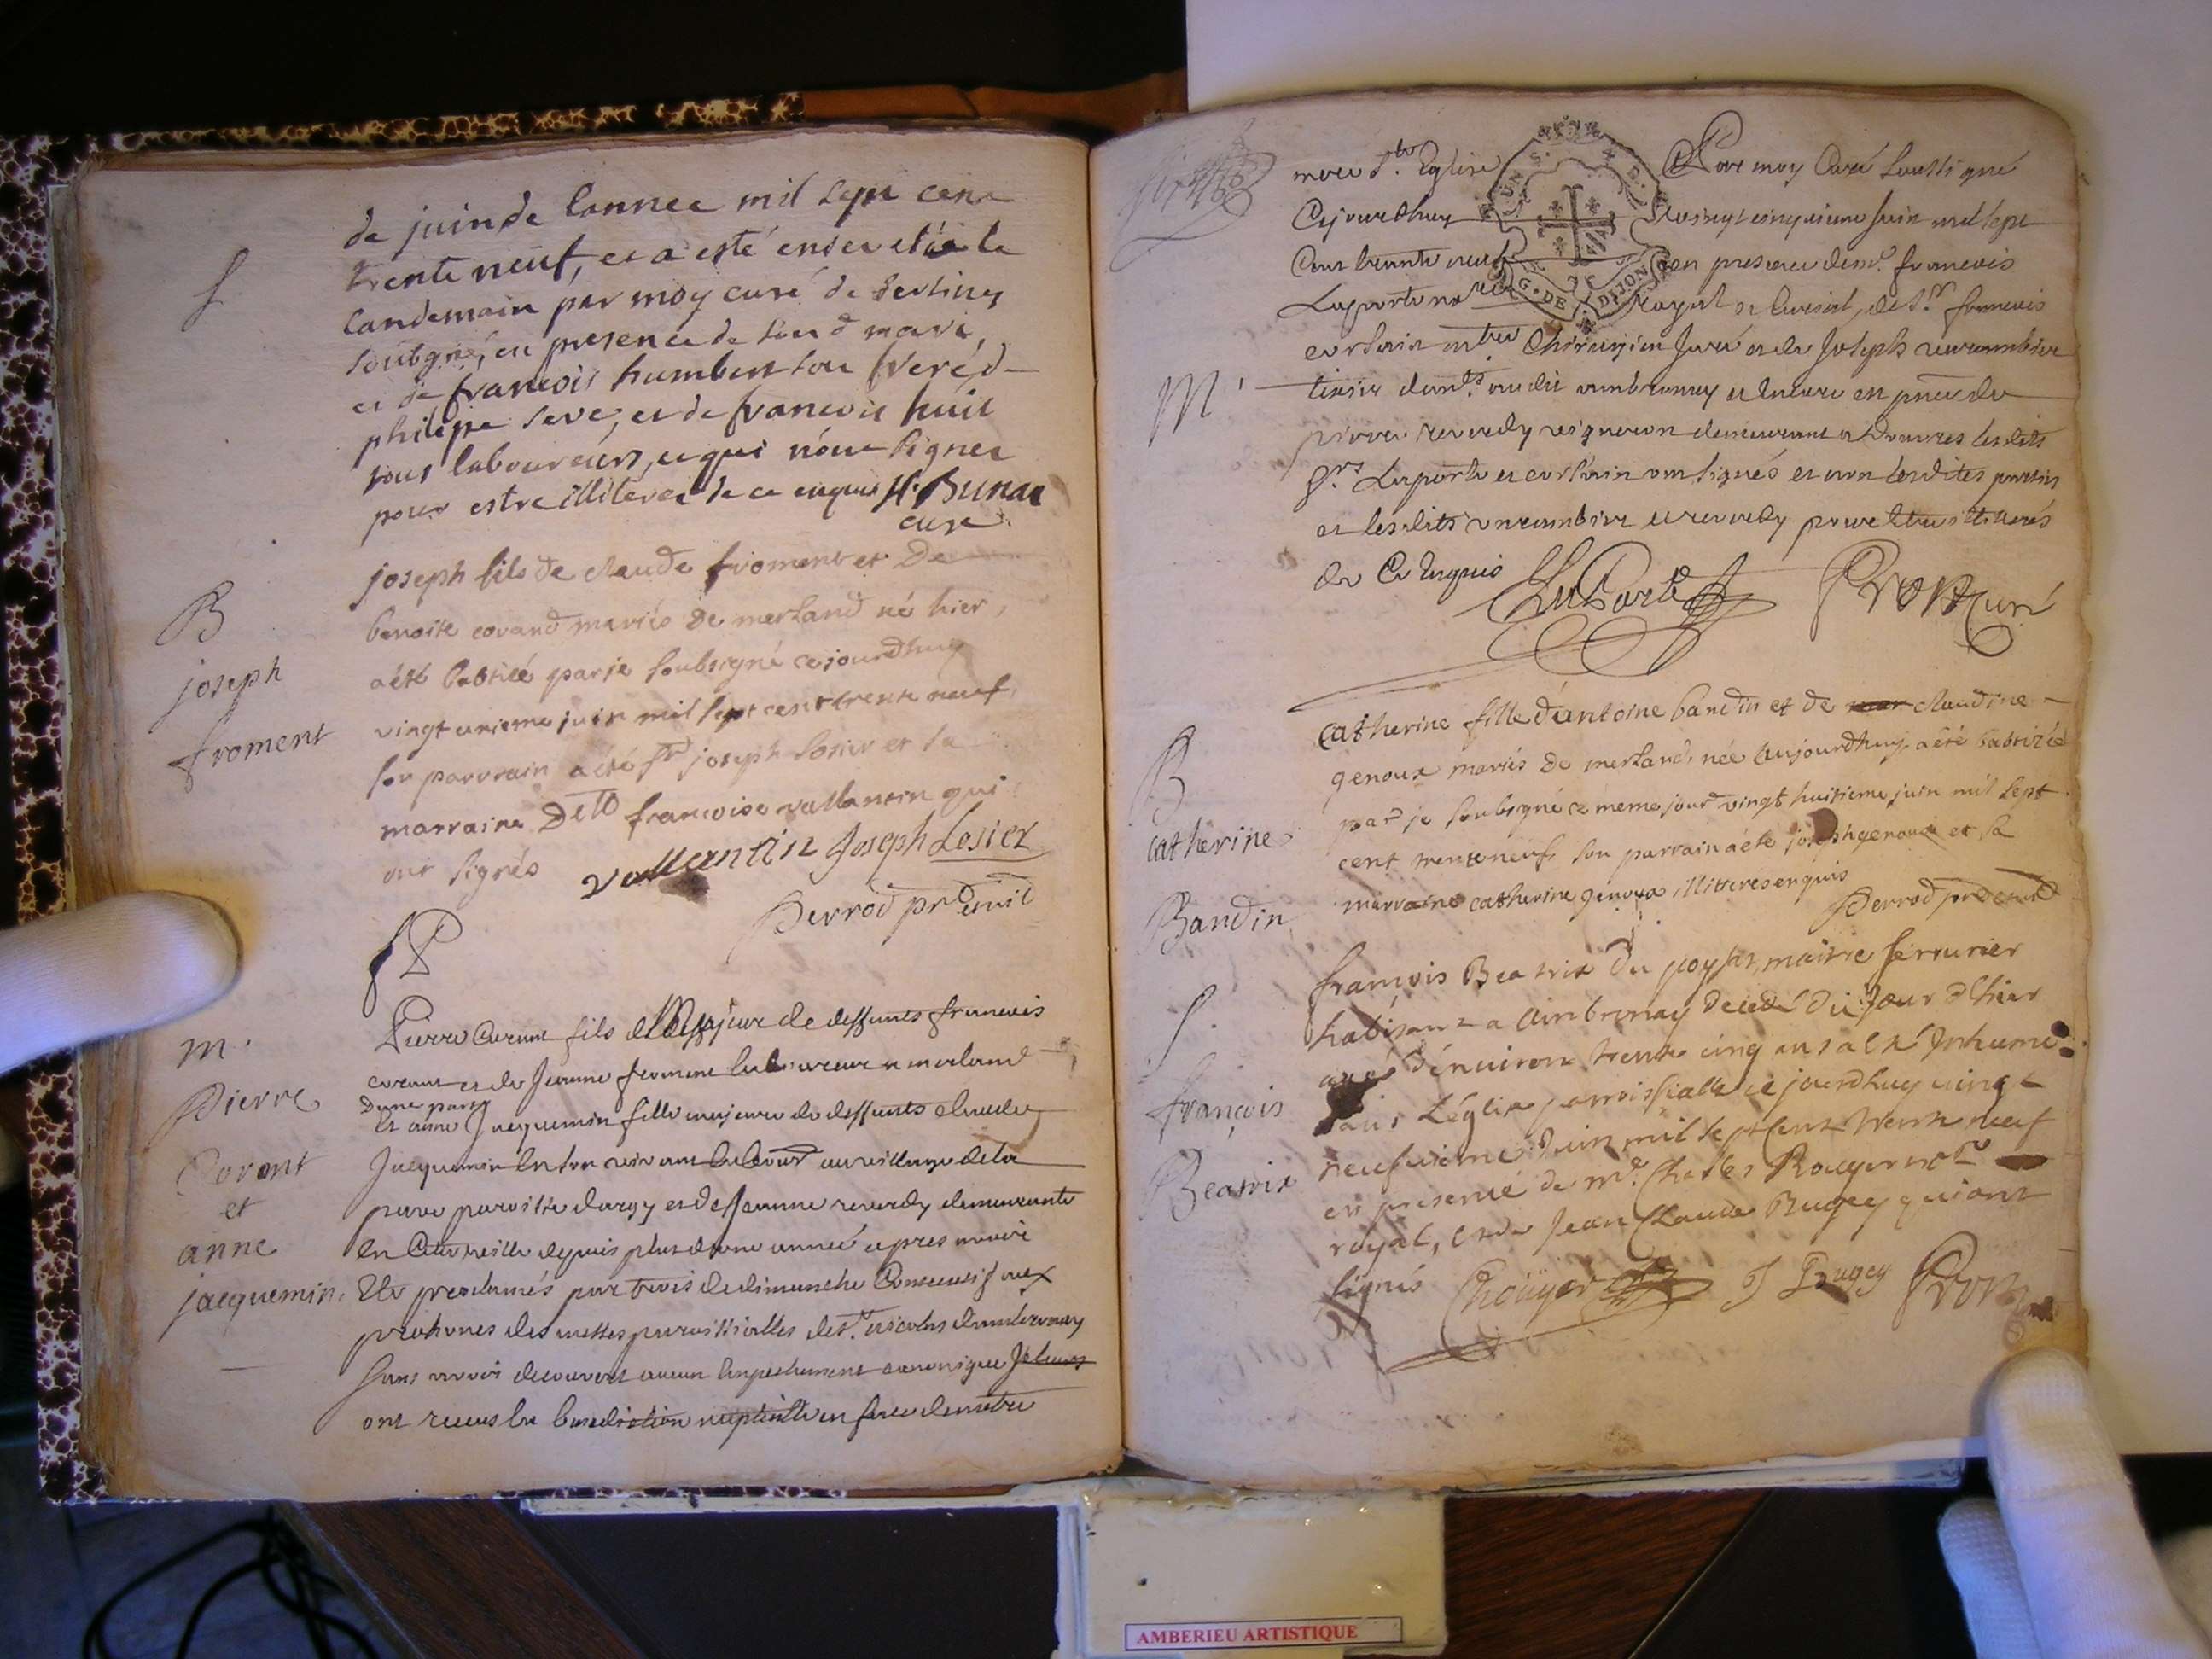 de juin de lannee mil sept cent
trente neuf, et a esté enseveli le
landemain par moy curé de
soubsigné, en presence de son d mari,
et de francois humbert
philippe seve, et de francois huit
tous laboureurs, et qui n'ont signer
pour estre illiteres de ce enquis
curé
B
joseph
froment
joseph fils de claude froment et De
benoite corand mariés De merland né hier,
a été batisé par je soubsigné cejourdhuy
vingt unieme juin mil sept cent trente neuf,
son parrain a été sr joseph Losier et sa
marraine Dello francoise vallantin qui
ont signés vallantin Joseph Losier
Perrod pre curé
m.
Pierre
Corant
et
anne
jacquemin.
Pierre Corant fils majeur de deffunts francois
corant et de Jeanne froment laboureur a merland
Dune part
et anne Jacquemin fille majeure de deffunts claude
Jacquemin en son vivant au village de la
paroisse et de Jeanne reverdy demeurante
en depuis plus dune année apres avoir
Été proclamés par trois de dimanche Consecutif aux
prohones des messes paroissialles de st nicolas dambronay
sans avoir decouvert aucun Empechement canonique
ont receus la benediction nuptialle en face de notre
mere ste Eglise Par moy Curé soussigné
Cejourdhuy vingt cinquieme juin mil sept
Cent trente neuf en presence de mr francois
Laporte Royal de sr francois
mtre Chirurgien Juré et de Joseph
M.
tixier audit ambronay et encore en pnce de
pierre reverdy vigneron demeurant a Douvres lesdits
srs Laporte et ont signés et non lesdites parties
et lesdits et reverdy pour etre illiterés
de Ce Enquis LaPorte Curé
B
catherine
Bandin
catherine fille d'antoine bandin et de claudine
genoux mariés De merland, née aujourdhuy a été batisée
par je soubsigné ce meme jour vingt huitieme juin mil sept
cent trente neuf, son parrain a été joseph genoux et sa
marraine catherine genoux illitteres enquis
Perrod pre curé
f.
françois
Beatrix
françois Beatrix Du maitre serrurier
habitant a ambronay decedé du jour d'hier
agé d'environ trente cinq ans a été Inhumé
dans L'église parroissialle ce jourdhuy vingt
neufvieme Juin mil sept cent trente neuf
en presence de mr Charles Rouyer
royal, et de Jean Claude Bugey qui ont
signés Rouyer J Bugey
G. DE DIJON
AMBERIEU ARTISTIQUE